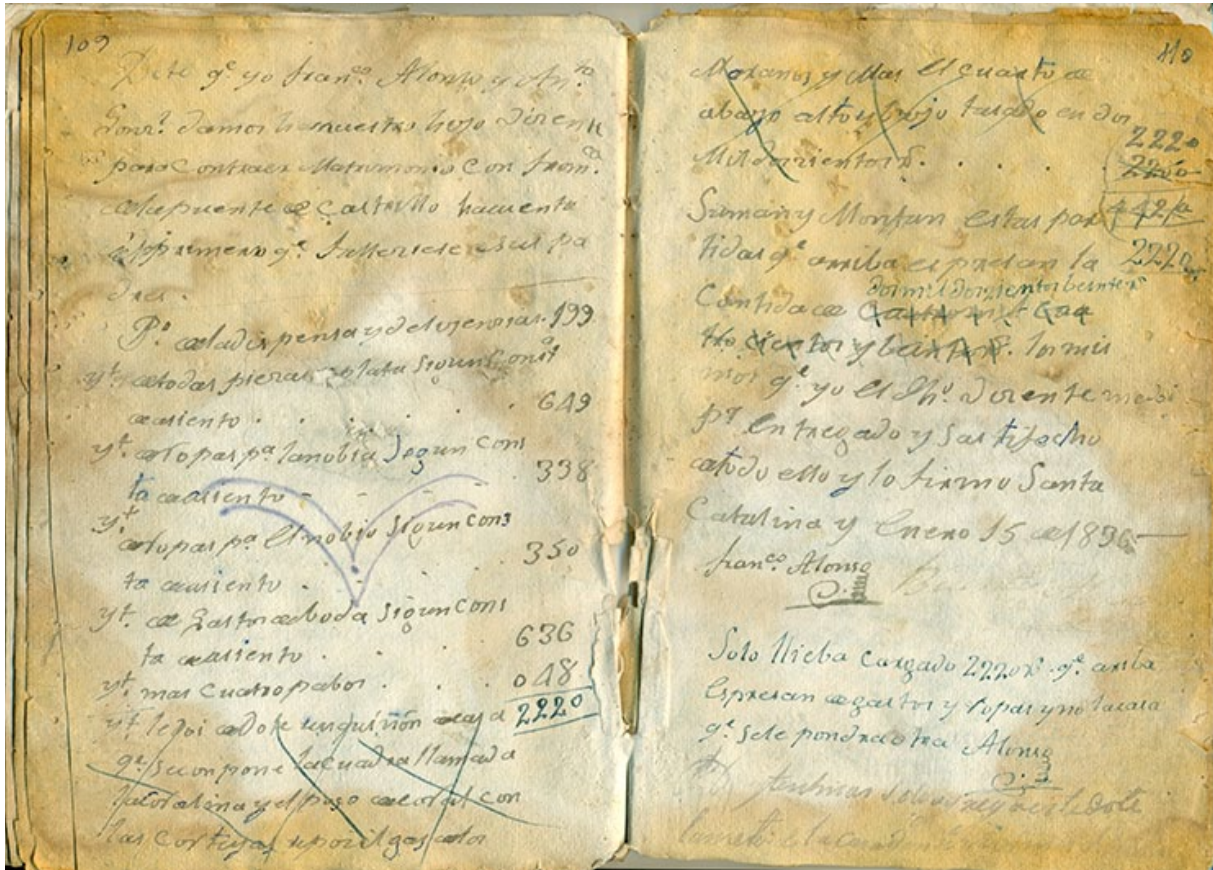 109
Dote qe yo franco Alonso y Anta
Gonz. damos ha nuestro hijo Visente
para Contraer Matrimonio Con franca
de la puente de Castrillo ha cuenta
primero qe
dres.
Po de la dispensa y delijensias. 199
yt. de todas piezas plata Segun Const
de asiento . . . . 649
yt. de Ropas pa la nobia Segun Cons
ta de asiento - - - . . 338
yt. de Ropas pa El nobio Segun Cons
ta de asiento . . . . 350
yt. de Gastos de boda Segun Cons
ta de asiento . . . . 636
yt. mas Cuatro pabos . . . 048
yt le doi de Dote un quiñon de casa 2220
qe se conpone la cuadra llamada
y el pozo de corral con
las Cortejas
110
Moranos y Mas El cuarto de
abajo alto y bajo tasado en dos
Mil dozientos r. . . . 2220
2200
Suman y Montan estas par 4420
tidas qe arriba espresan la 2220
dos mil dozientos beinte r
Cantidad de Cuatro mil Cua
tro cientos y beinte r. los mis
mos qe yo El dho. Visente
por Entregado y Sastifecho
de todo ello y lo firmo Santa
Catalina y Enero 15 de 1836
franco Alonso
Solo llieba Cargado 2220 r. qe arriba
Espresan de gastos y Ropas y no la casa
qe se le pondra otra Alonso